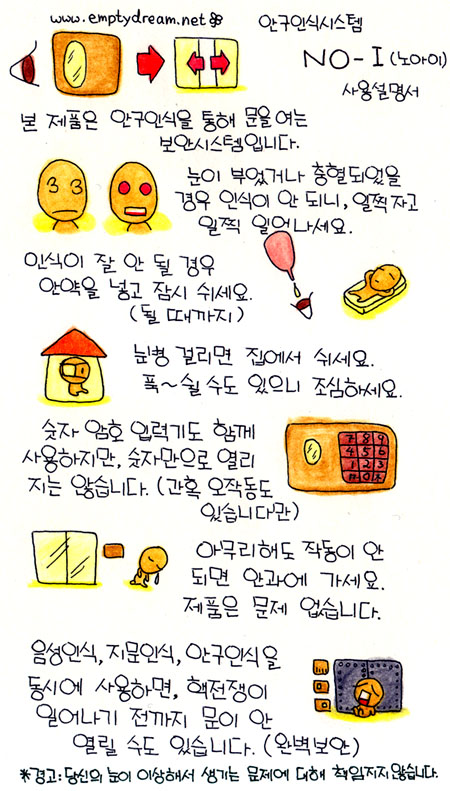 www.emptydream.net
안구인식시스템
NO-I (노아이)
사용설명서
본 제품은 안구인식을 통해 문을 여는
보안시스템입니다.
눈이 부었거나 충혈되었을
경우 인식이 안 되니, 일찍 자고
일찍 일어나세요.
인식이 잘 안 될 경우
안약을 넣고 잠시 쉬세요.
(될 때까지)
눈병 걸리면 집에서 쉬세요.
푹~ 쉴 수도 있으니 조심하세요.
숫자 암호 입력기도 함께
사용하지만, 숫자만으로 열리
지는 않습니다. (간혹 오작동도
있습니다만)
7 8 9
4 5 6
1 2 3
아무리해도 작동이 안
되면 안과에 가세요.
제품은 문제 없습니다.
음성인식, 지문인식, 안구인식을
동시에 사용하면, 핵전쟁이
일어나기 전까지 문이 안
열릴 수도 있습니다. (완벽보안)
*경고: 당신의 눈이 이상해서 생기는 문제에 대해 책임지지 않습니다.